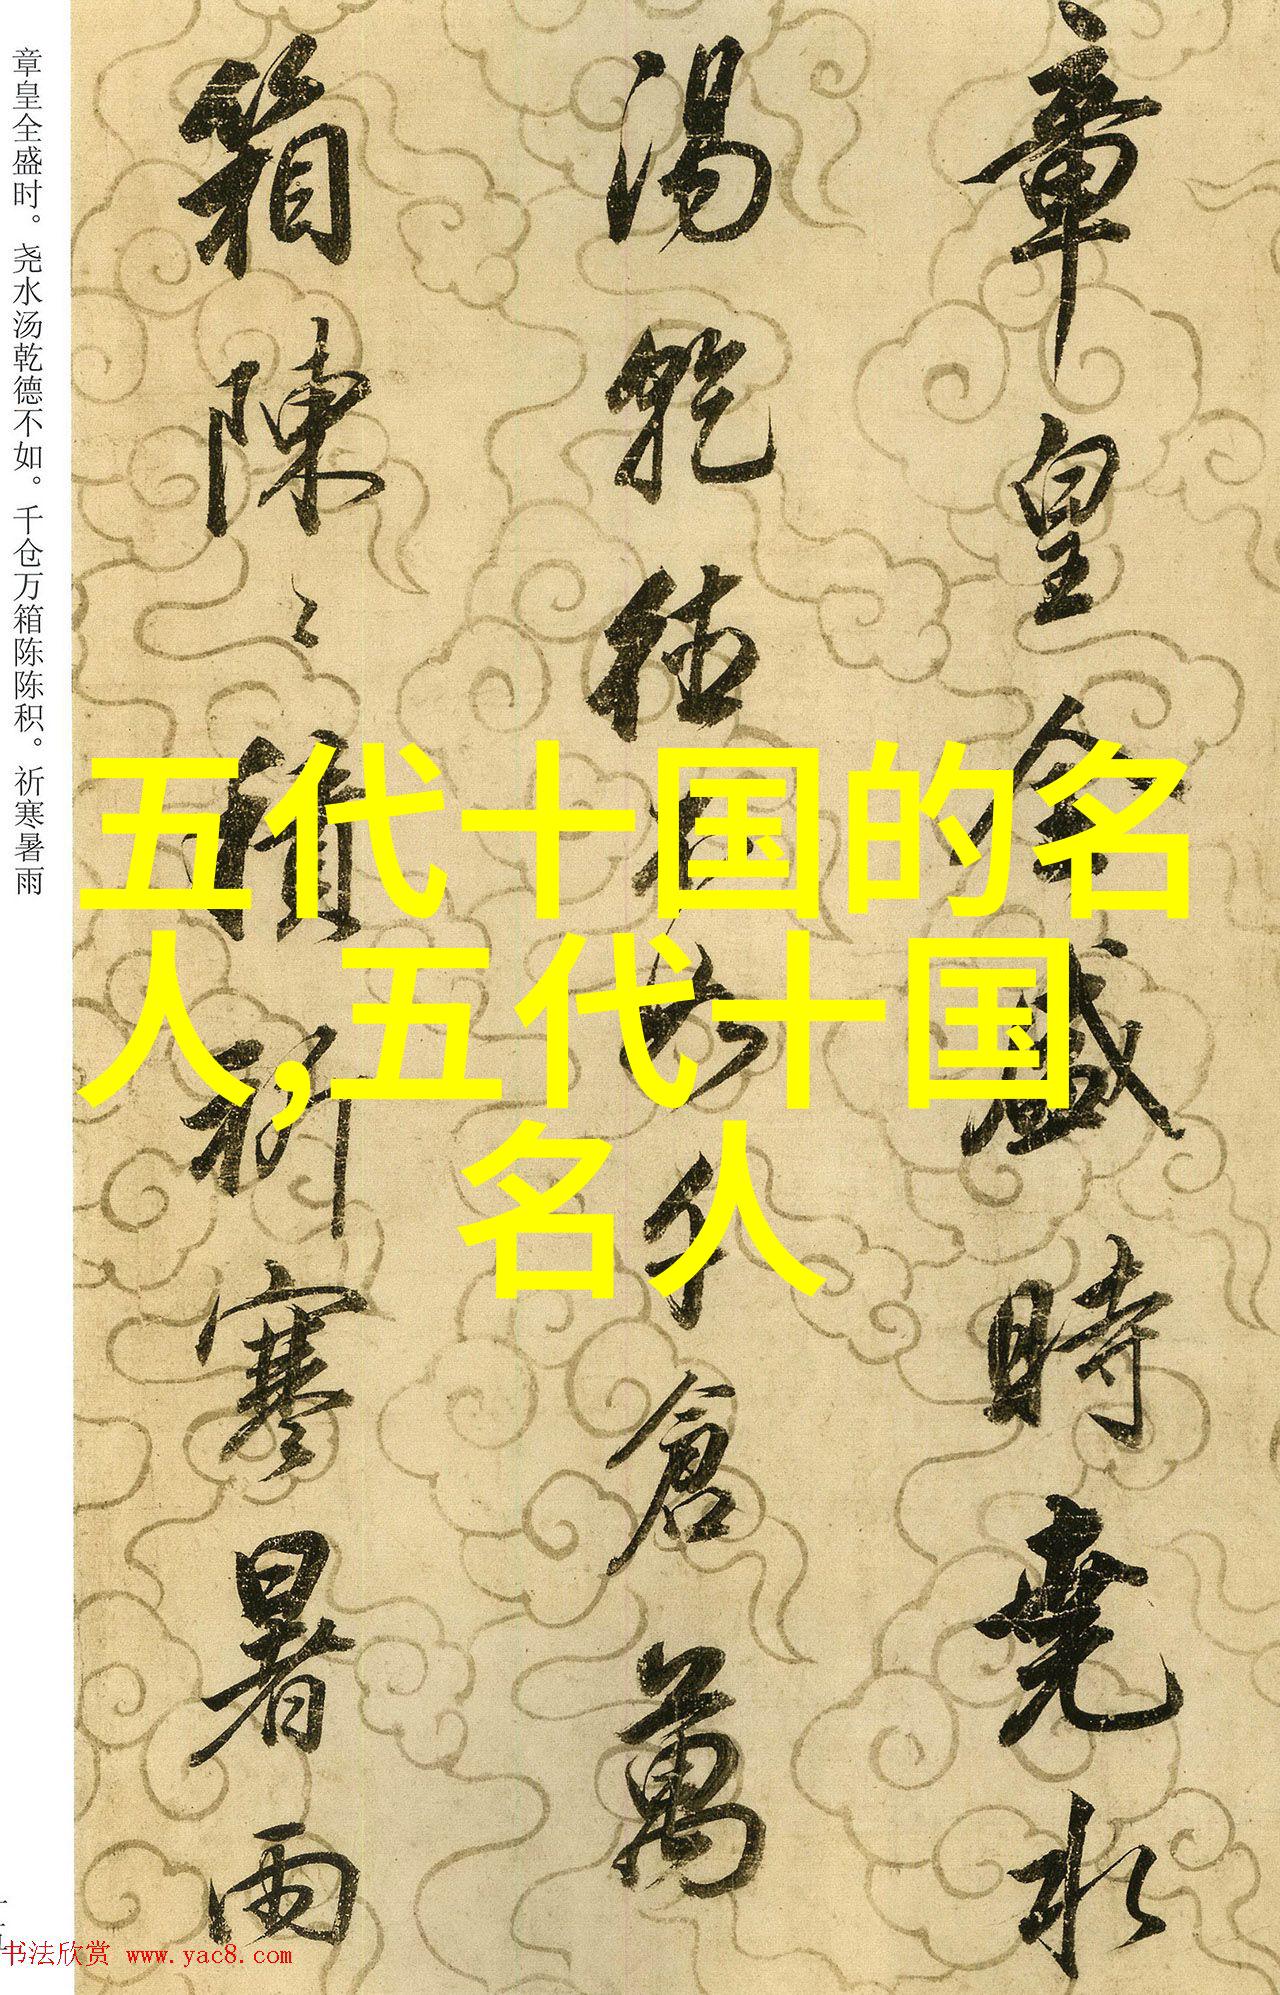 章皇全盛时。尧水汤乾德不如。千仓万箱陈陈积。祈寒暑雨
章皇全盛時堯水
湯乾德不如千倉萬
箱陳〻積祈寒暑雨
五代十国的名
人,五代十国
名人
书法欣赏 www.yac8.com